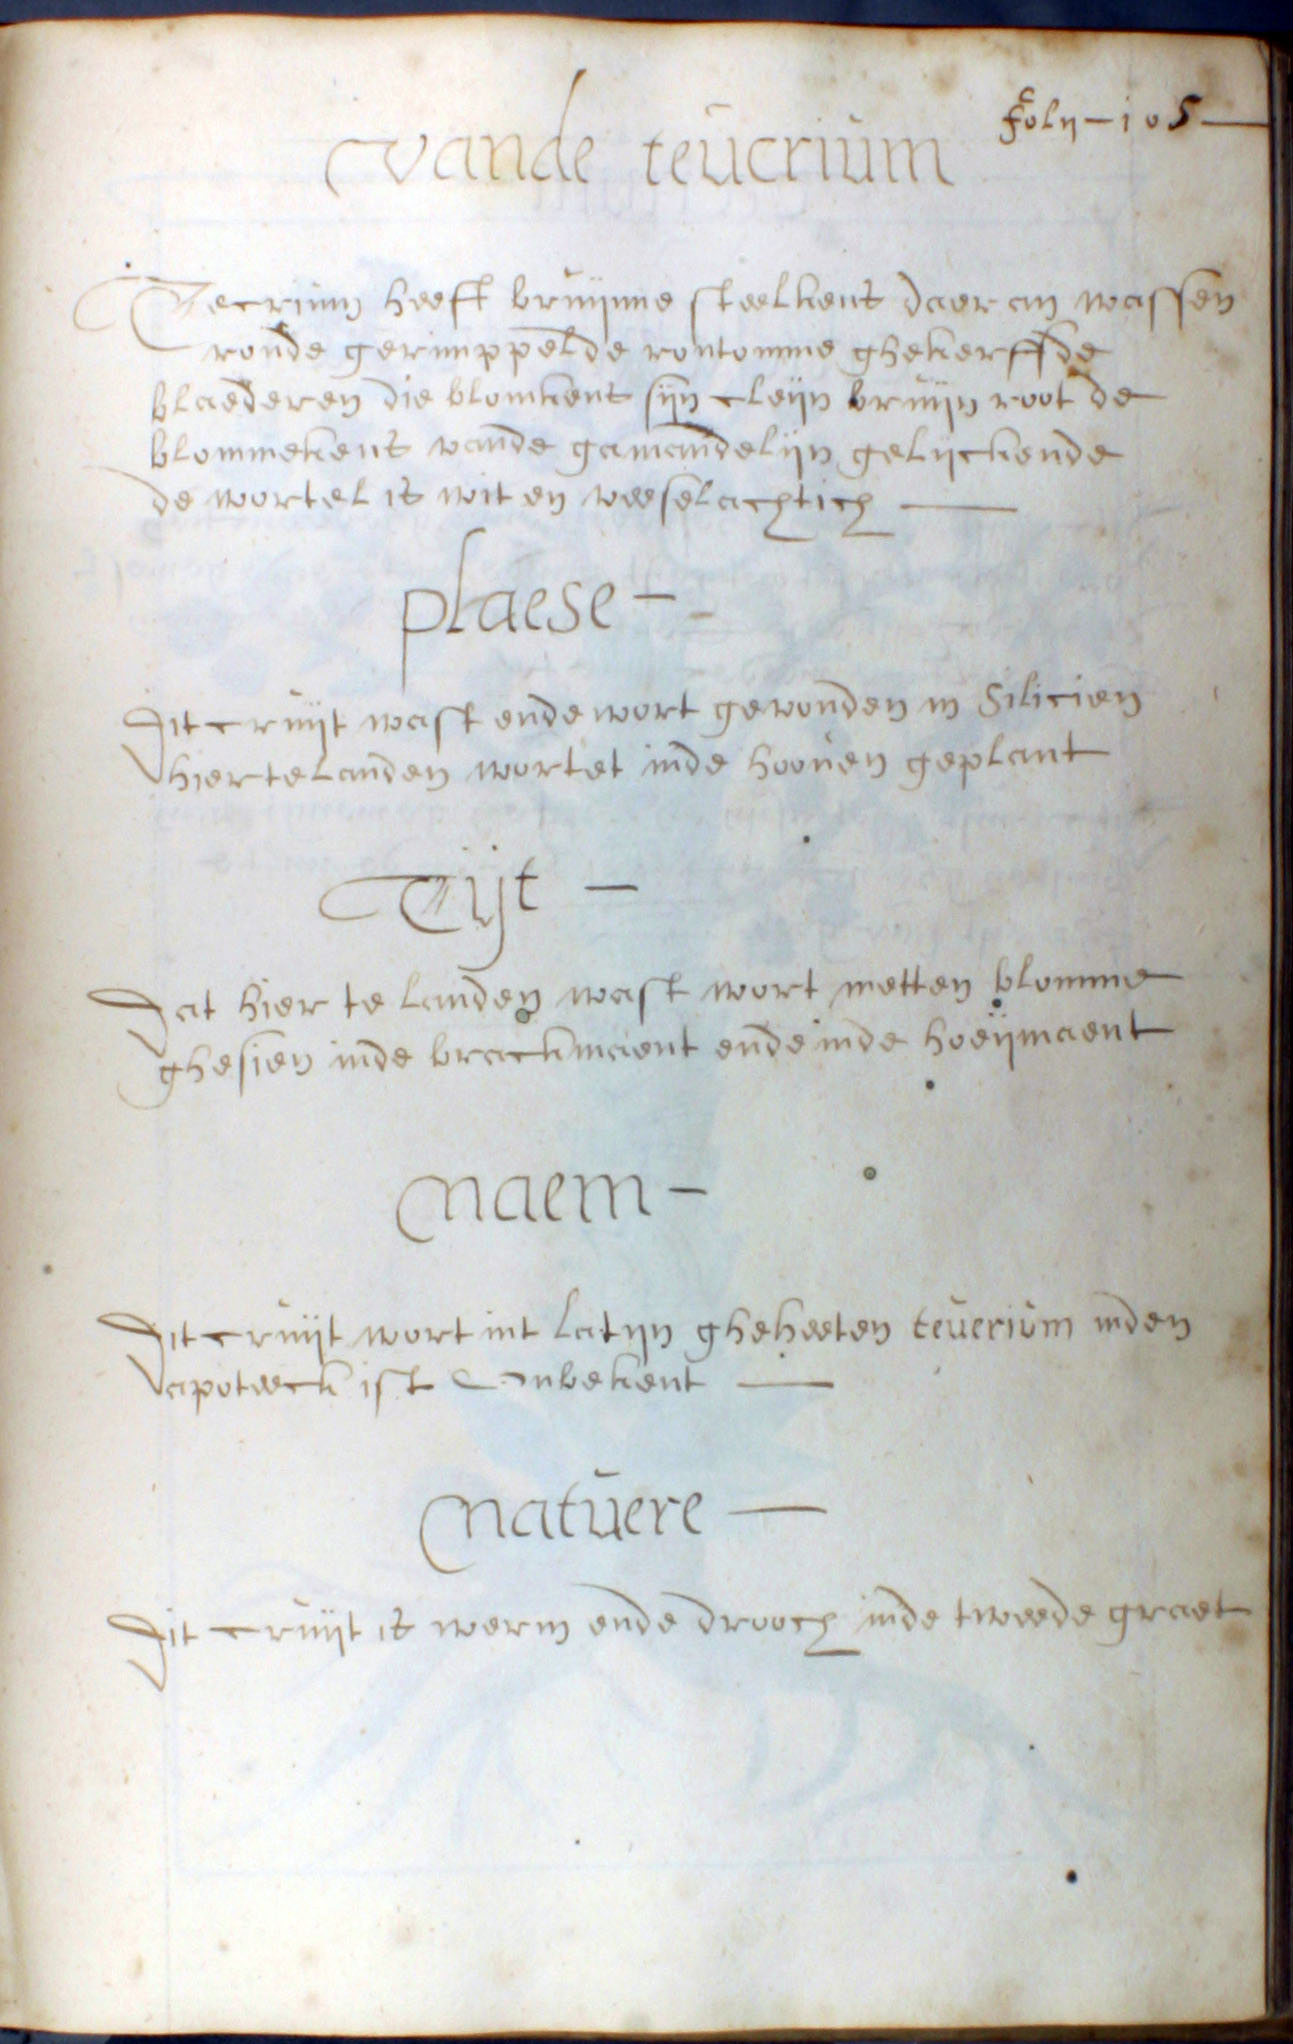 foly - 105 -
vande teucrium
Tecrium heeft bruijnne steelkens daer an wassen
ronde gerimppelde rontomme ghekerffde
blaederen die blomkens sijn cleijn bruijn root de
blommekens vande gamandelijn gelijckende
de wortel is wit en veeselachtich —
plaese -
Dit cruijt wast ende wort gevonden in Silicien
hier te landen wortet inde hooven geplant
Tijt -
Dat hier te landen wast wort metten blomme
ghesien inde brackmaent ende inde hoeijmaent
naem -
Dit cruijt wort int latijn gheheeten teuerium inden
apoteeck ist onbekent —
natuere —
Dit cruijt is werm ende drooch inde tweede graet